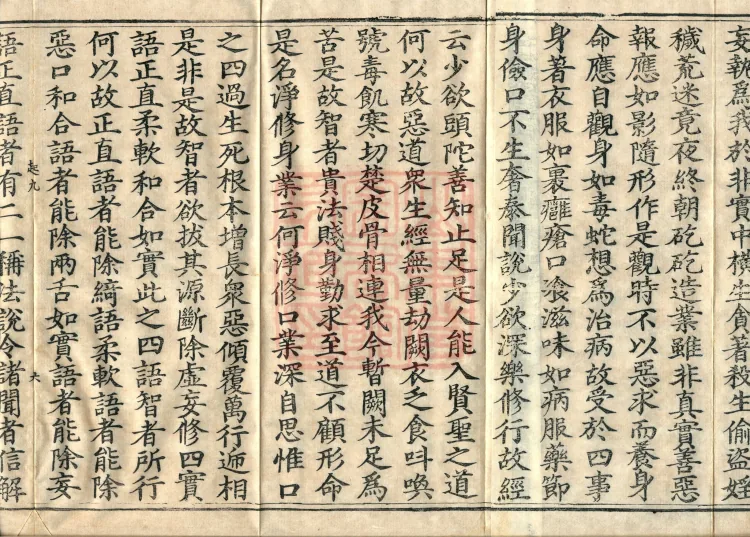 妄執為我於非實中橫生貪著殺生偷盜婬
穢荒迷竟夜終朝矻矻造業雖非真實善惡
報應如影隨形作是觀時不以惡求而養身
命應自觀身如毒蛇想為治病故受於四事
身著衣服如裹癰瘡口飡滋味如病服藥節
身儉口不生奢泰聞說少欲深樂修行故經
云少欲頭陀善知止足是人能入賢聖之道
何以故惡道衆生經無量劫闕衣乏食叫喚
號毒飢寒切楚皮骨相連我今暫闕未足為
苦是故智者貴法賤身勤求至道不顧形命
是名淨修身業云何淨修口業深自思惟口
之四過生死根本增長衆惡傾覆萬行遞相
是非是故智者欲拔其源斷除虛妄修四實
語正直柔軟和合如實此之四語智者所行
何以故正直語者能除綺語柔軟語者能除
惡口和合語者能除兩舌如實語者能除妄
起九 六
語正直語者有二一稱法說令諸聞者信解